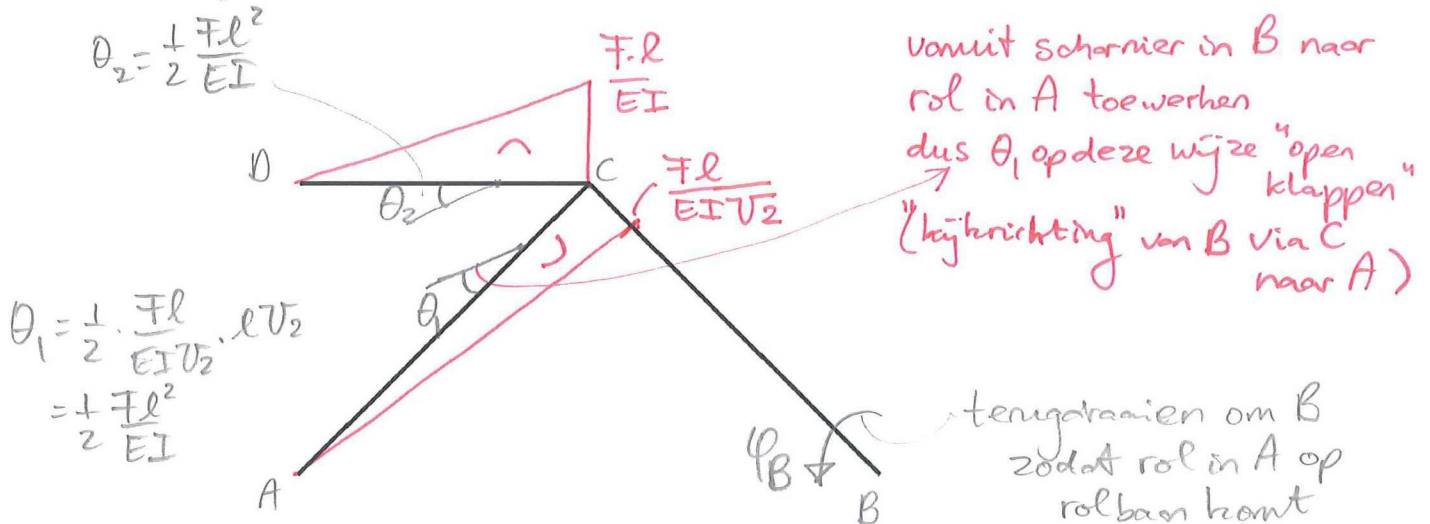 θ₂ = 1/2 Fl²/EI
F.l/EI
vanuit scharnier in B naar
rol in A toewerken
dus θ₁ op deze wijze "open
klappen"
("kijkrichting" van B via C
naar A)
D
C
θ₂
Fl/EI√2
θ₁
θ₁ = 1/2 · Fl/EI√2 · l√2
= 1/2 Fl²/EI
terugdraaien om B
zodat rol in A op
rolbaan komt
φB
A
B